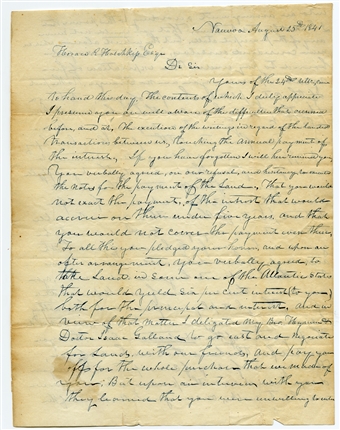 Nauvoo August 25th 1841
Horace R Hotchkiss Esqr
Dr Sir
Yours of the 24th ultimo
to hand this day, The contents of which I duly appreciate
I presume you are well aware of the difficulties that occured
before, and at, the execution of the writings in regard of the landed
transaction between us, touching the annual payment of
the interest, If you have forgotten I will here remind you
You verbally agreed, on our refusal, and hesitancy to execute
the notes for the payment of the Land, That you would
not exact the payment, of the interest that would
accrue on them under five years, and that
you would not coerce the payment even then;
To all this you pledged your honor, and upon an
after arrangement, you verbally agreed to
take Land in Some one of the Atlantic States
that would yield six per cent interest (to you)
both for the principal and interest, and in
view of that matter I delegated my Bro Hyrum and
Doctor Isaac Galland to go east and negotiate
for Lands with our friends, and pay you
off for the whole purchase that we made of
you; But upon an interview with you
they learned that you were unwilling to enter